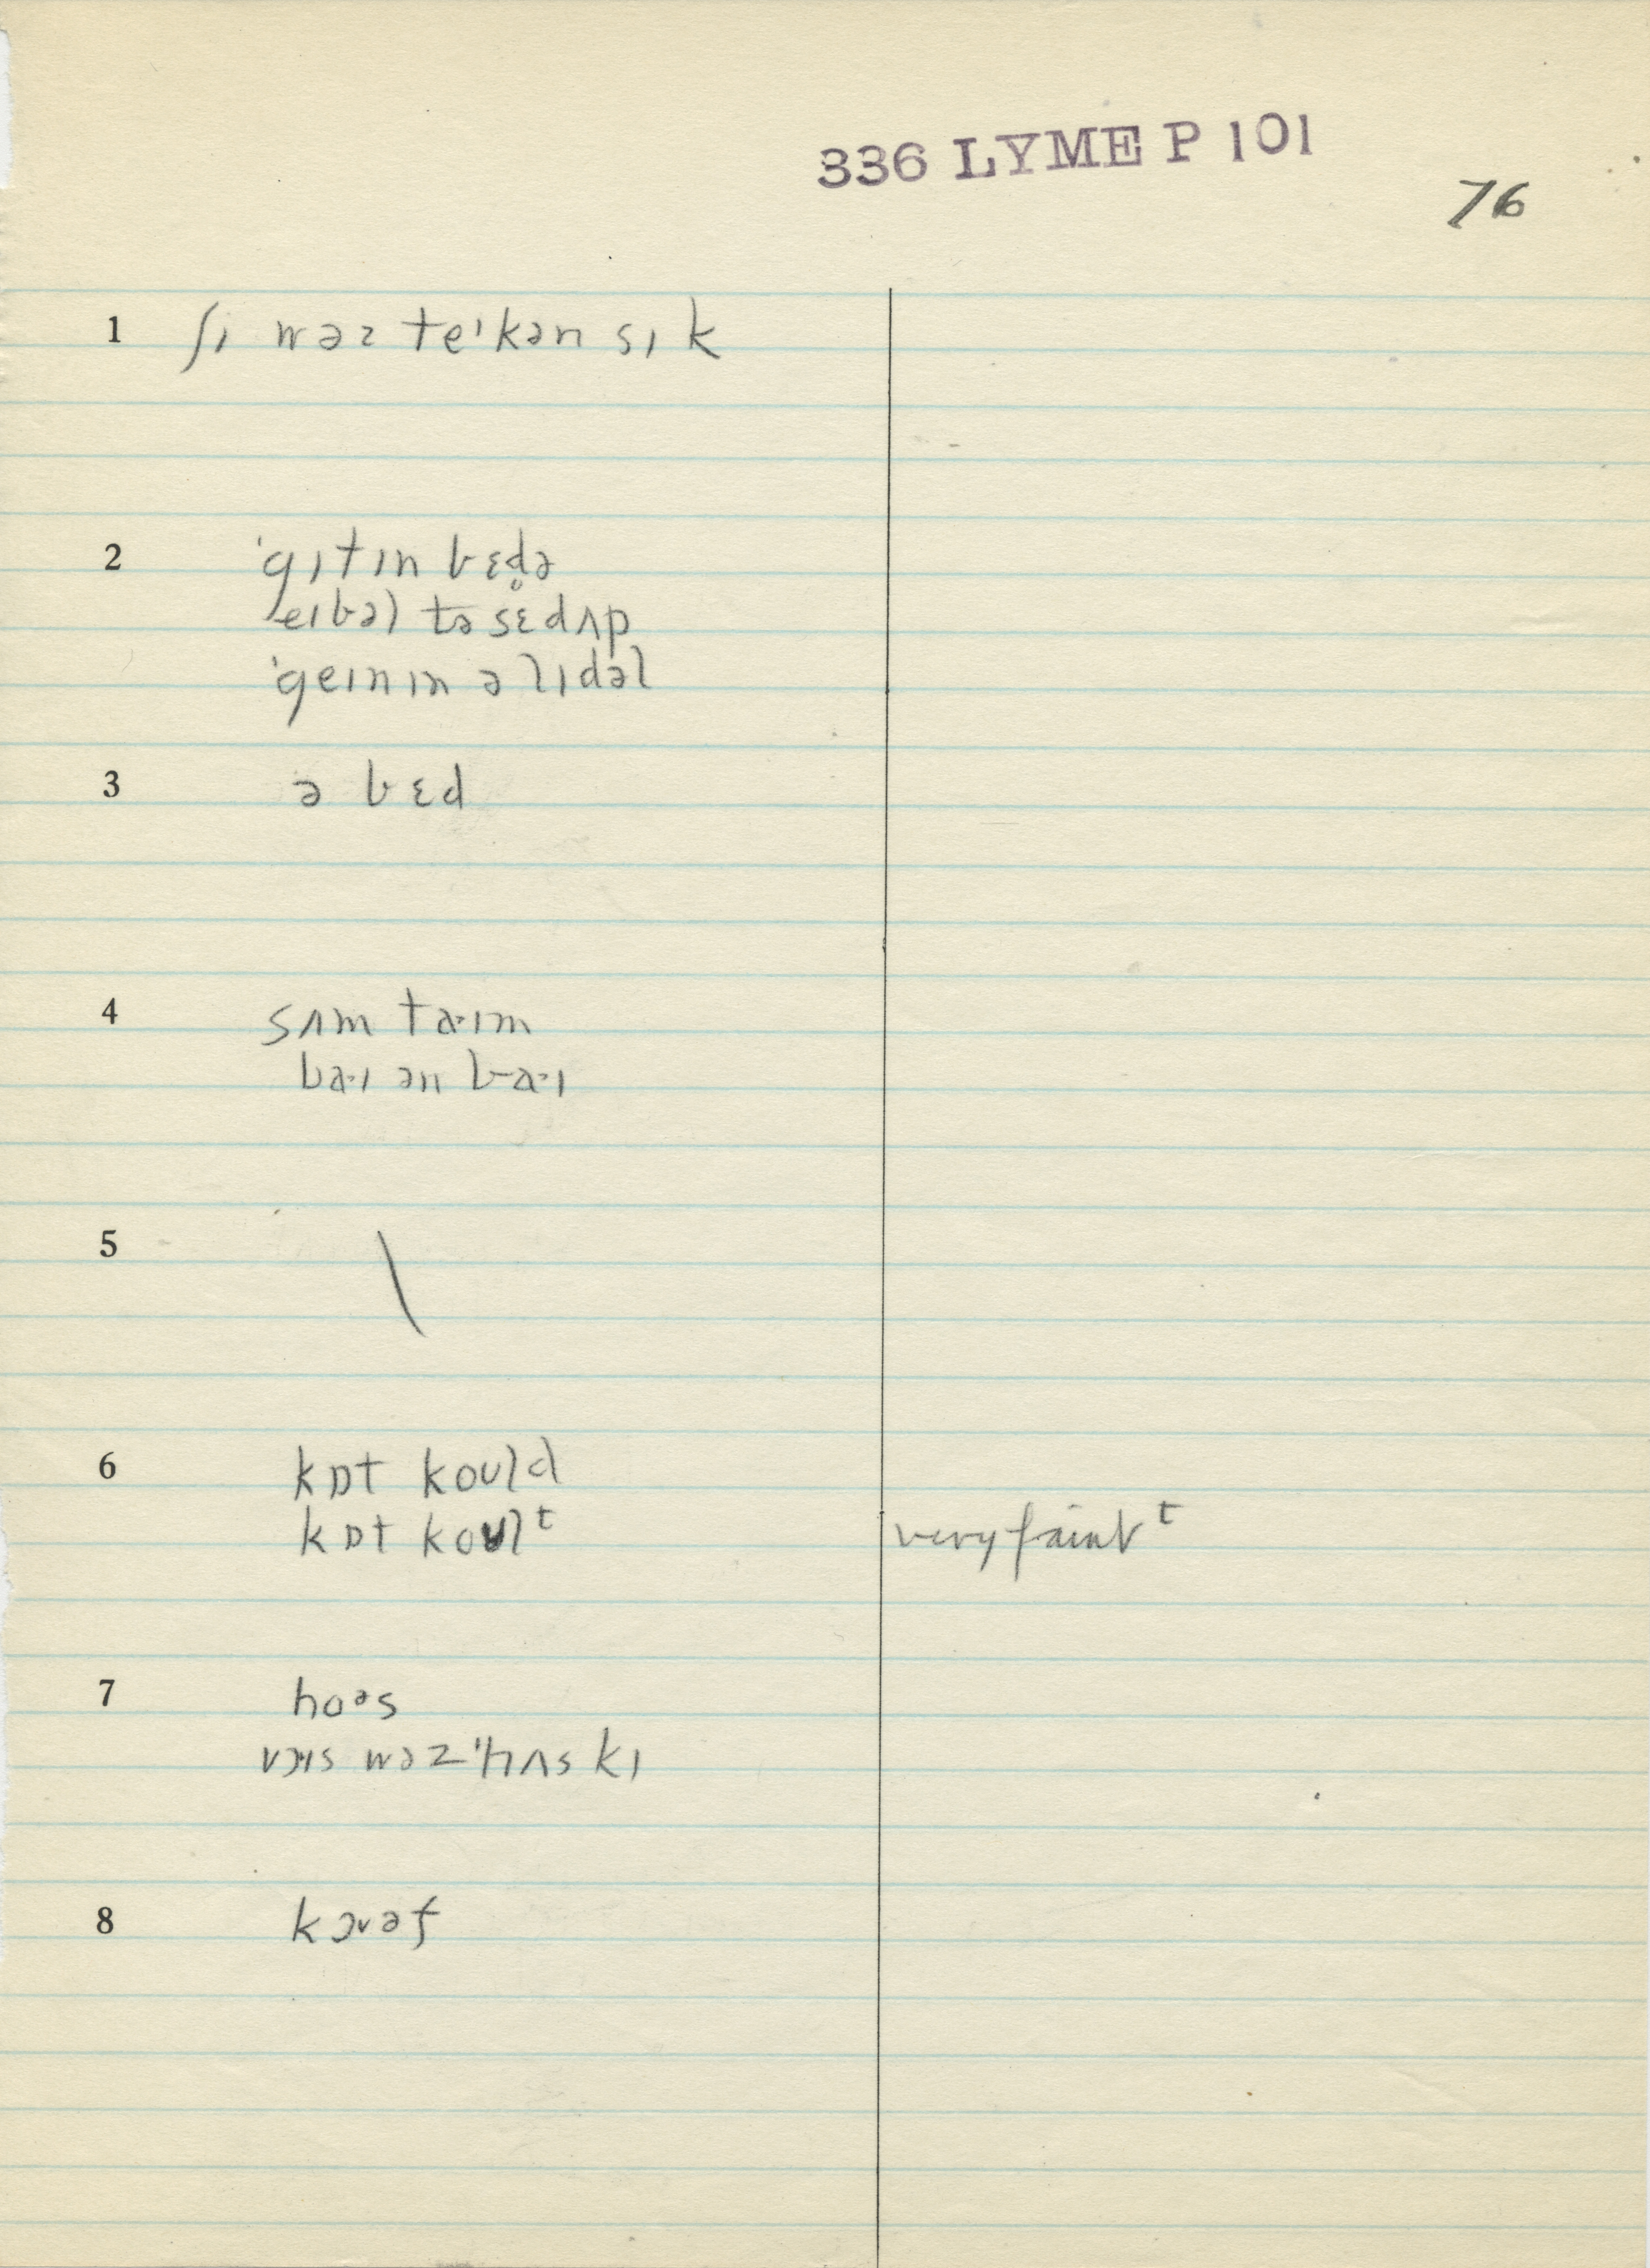 336 LYME P 101
76
1 ʃɪ wəz teɪkən sɪk
2 ˈgɪtɪn bɛd̥ə
eɪbəl tə sɛdʌp
ˈgeɪnɪn ə lɪdəl
3 ə bɛd
4 sʌm ta·ɪm
ba·ɪ ən ba·ɪ
5 \
6 kɒt koʊld
kɒt koʊlᵗ very faint ᵗ
7 hoᵊs
vɔɪs wəz ˈhʌskɪ
8 kɔvəf